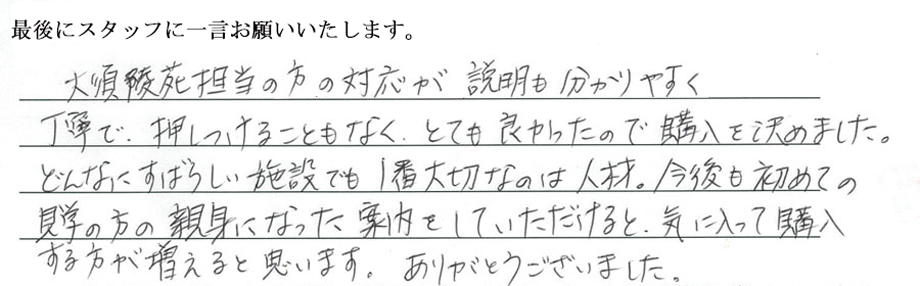 最後にスタッフに一言お願いいたします。
大須陵苑担当の方の対応が説明も分かりやすく
丁寧で、押しつけることもなく、とても良かったので購入を決めました。
どんなにすばらしい施設でも1番大切なのは人材。今後も初めての
見学の方の親身になった案内をしていただけると、気に入って購入
する方が増えると思います。ありがとうございました。